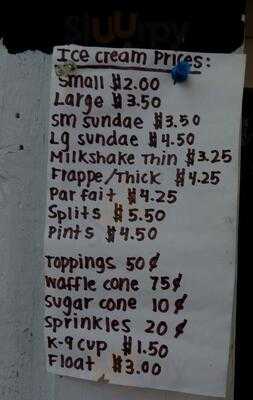 sluurpy
Ice cream Prices:
Small $2.00
Large $3.50
Sm sundae $3.50
Lg sundae $4.50
Milkshake Thin $3.25
Frappe/Thick $4.25
Parfait $4.25
Splits $5.50
Pints $4.50
Toppings 50¢
Waffle cone 75¢
Sugar cone 10¢
Sprinkles 20¢
K-9 cup $1.50
Float $3.00